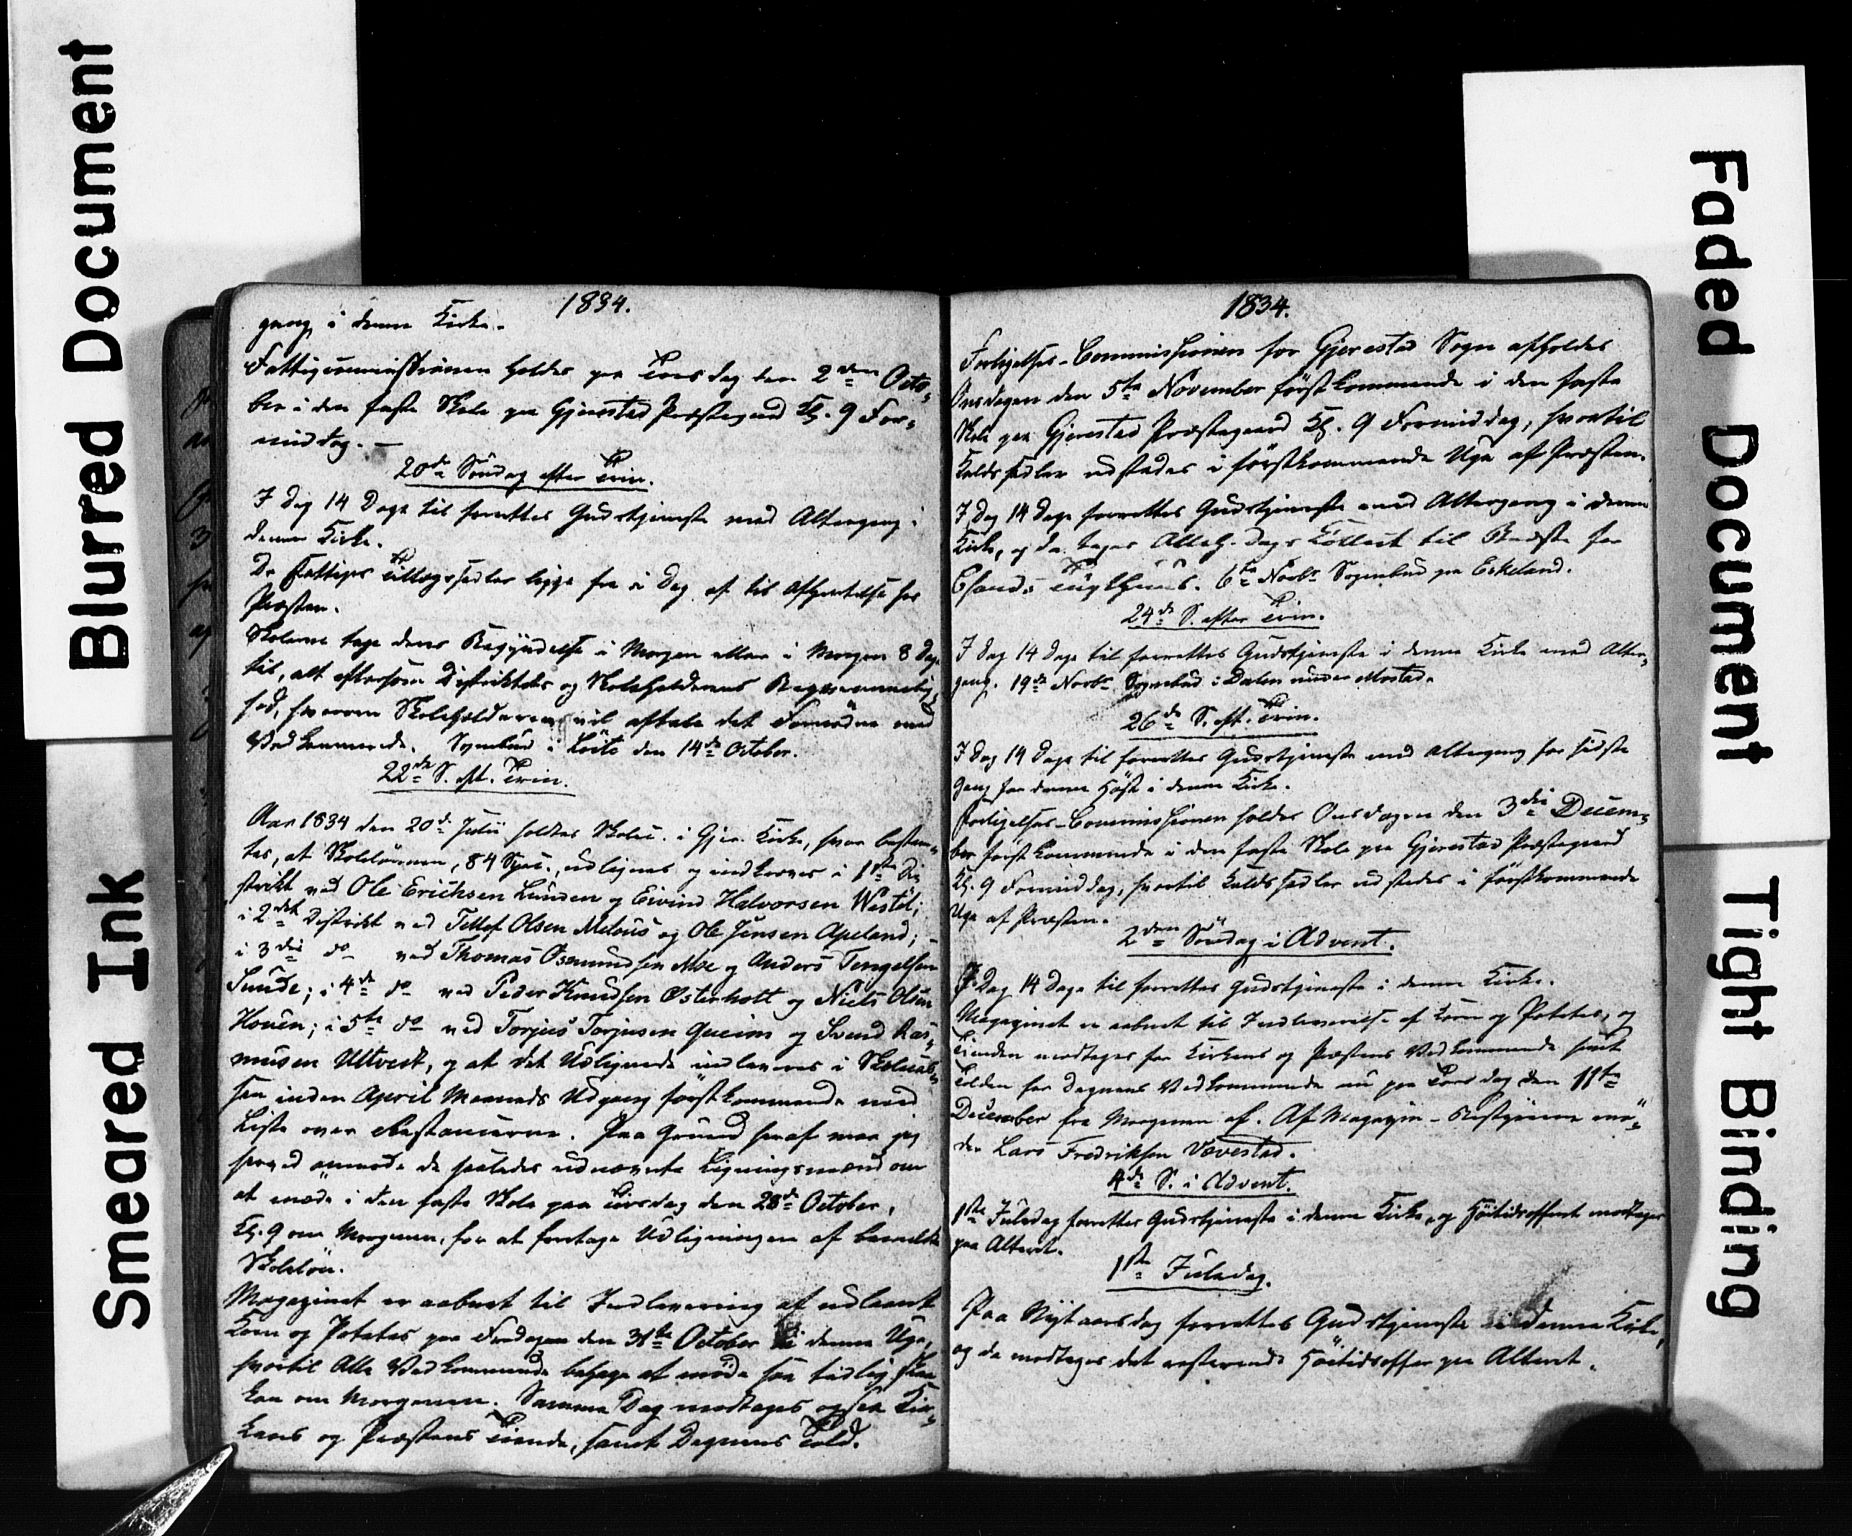 Blurred Document
Smeared Ink
Faded Document
Tight Binding
1834.
gang i denne Kirke.
Fattigcommissionen holdes paa Torsdag den 2den Octo-
ber i den faste Skole paa Gjerestad Præstegaard Kl. 9 For-
middag. —
20de Søndag efter Trin.
I Dag 14 Dage til forrettes Gudstjeneste med Altergang i
denne Kirke.
De Fattiges Tillægssedler ligge fra i Dag af til Afhentelse hos
Præsten.
Skolerne tage deres Begyndelse i Morgen eller i Morgen 8 Dage
til, alt eftersom Distriktets og Skoleholderens Beqvemmelig-
hed, hvorom Skoleholderen vil aftale det Fornødne med
Vedkommende. Sognebud i Løite den 14de October.
22de S. eft. Trin.
Aar 1834 den 20de Julii holdtes Skolec. i Gjer. Kirke, hvor bestem-
tes, at Skolelønnen, 84 Spec., udlignes og indkræves i 1ste Di-
strikt ved Ole Erichsen Lunden og Eivind Halvorsen Westøl;
i 2det Distrikt ved Tellef Olsen Melaas og Ole Jensen Apeland;
i 3die do ved Thomas Osmundsen Moe og Anders Tengelsen
Sunde; i 4de do ved Peder Knudsen Østerholt og Niels Olsen
Houen; i 5te do ved Torjus Torjusen Qveim og Svend Ras-
musen Ulltvedt, og at det Udlignede indleveres i Skolecas-
sen inden April Maaneds Udgang førstkommende med
Liste over Restancerne. Paa Grund heraf maa jeg
herved anmode de saaledes udnævnte Ligningsmænd om
at møde i den faste Skole paa Tirsdag den 28de October,
Kl. 9 om Morgenen, for at foretage Udligningen af bemeldte
Skoleløn.
Magazinet er aabent til Indlevering af udlaant
Korn og Potetes paa Fredagen den 31te October i denne Uge,
hvortil Alle Vedkommende behage at møde saa tidlig
kan om Morgenen. Samme Dag modtages ogsaa Kir-
kens og Præstens Tiende, samt Degnens Told.
1834.
Forligelses-Commissionen for Gjerestad Sogn afholdes
Onsdagen den 5te November førstkommende i den faste
Skole paa Gjerestad Præstegaard Kl. 9 Formiddag, hvortil
Kaldssedler udstedes i førstkommende Uge af Præsten.
I Dag 14 Dage forrettes Gudstjeneste med Altergang i denne
Kirke, og da tages Alleh. Dags Collect til Bedste for
Chsands Tugthuus. 6te Novbr Sognebud paa Eskeland.
24de S. efter Trin.
I Dag 14 Dage til forrettes Gudstjeneste i denne Kirke med Alter-
gang. 19de Novbr Sognebud i Dalen under Mostad.
26de S. eft. Trin.
I Dag 14 Dage til forrettes Gudstjeneste med Altergang for sidste
Gang for denne Høst i denne Kirke.
Forligelses-Commissionen holdes Onsdagen den 3die Decem-
ber førstkommende i den faste Skole paa Gjerestad Præstegaard
Kl. 9 Formiddag, hvortil Kaldssedler udstedes i førstkommende
Uge af Præsten.
2den Søndag i Advent.
I Dag 14 Dage til forrettes Gudstjeneste i denne Kirke.
Magazinet er aabent til Indleverelse af Korn og Potetes, og
Tienden modtages for Kirkens og Præstens Vedkommende samt
Tolden for Degnens Vedkommende nu paa Torsdag den 11te
December fra Morgenen af. Af Magazin-Bestyrerne mø-
der Lars Fredriksen Vævestad.
4de S. i Advent.
1ste Juledag forrettes Gudstjeneste i denne Kirke, og Høitidsofferet modtages
paa Alteret.
1ste Juledag.
Paa Nytaarsdag forrettes Gudstjeneste i denne Kirke,
og da modtages det resterende Høitidsoffer paa Alteret.